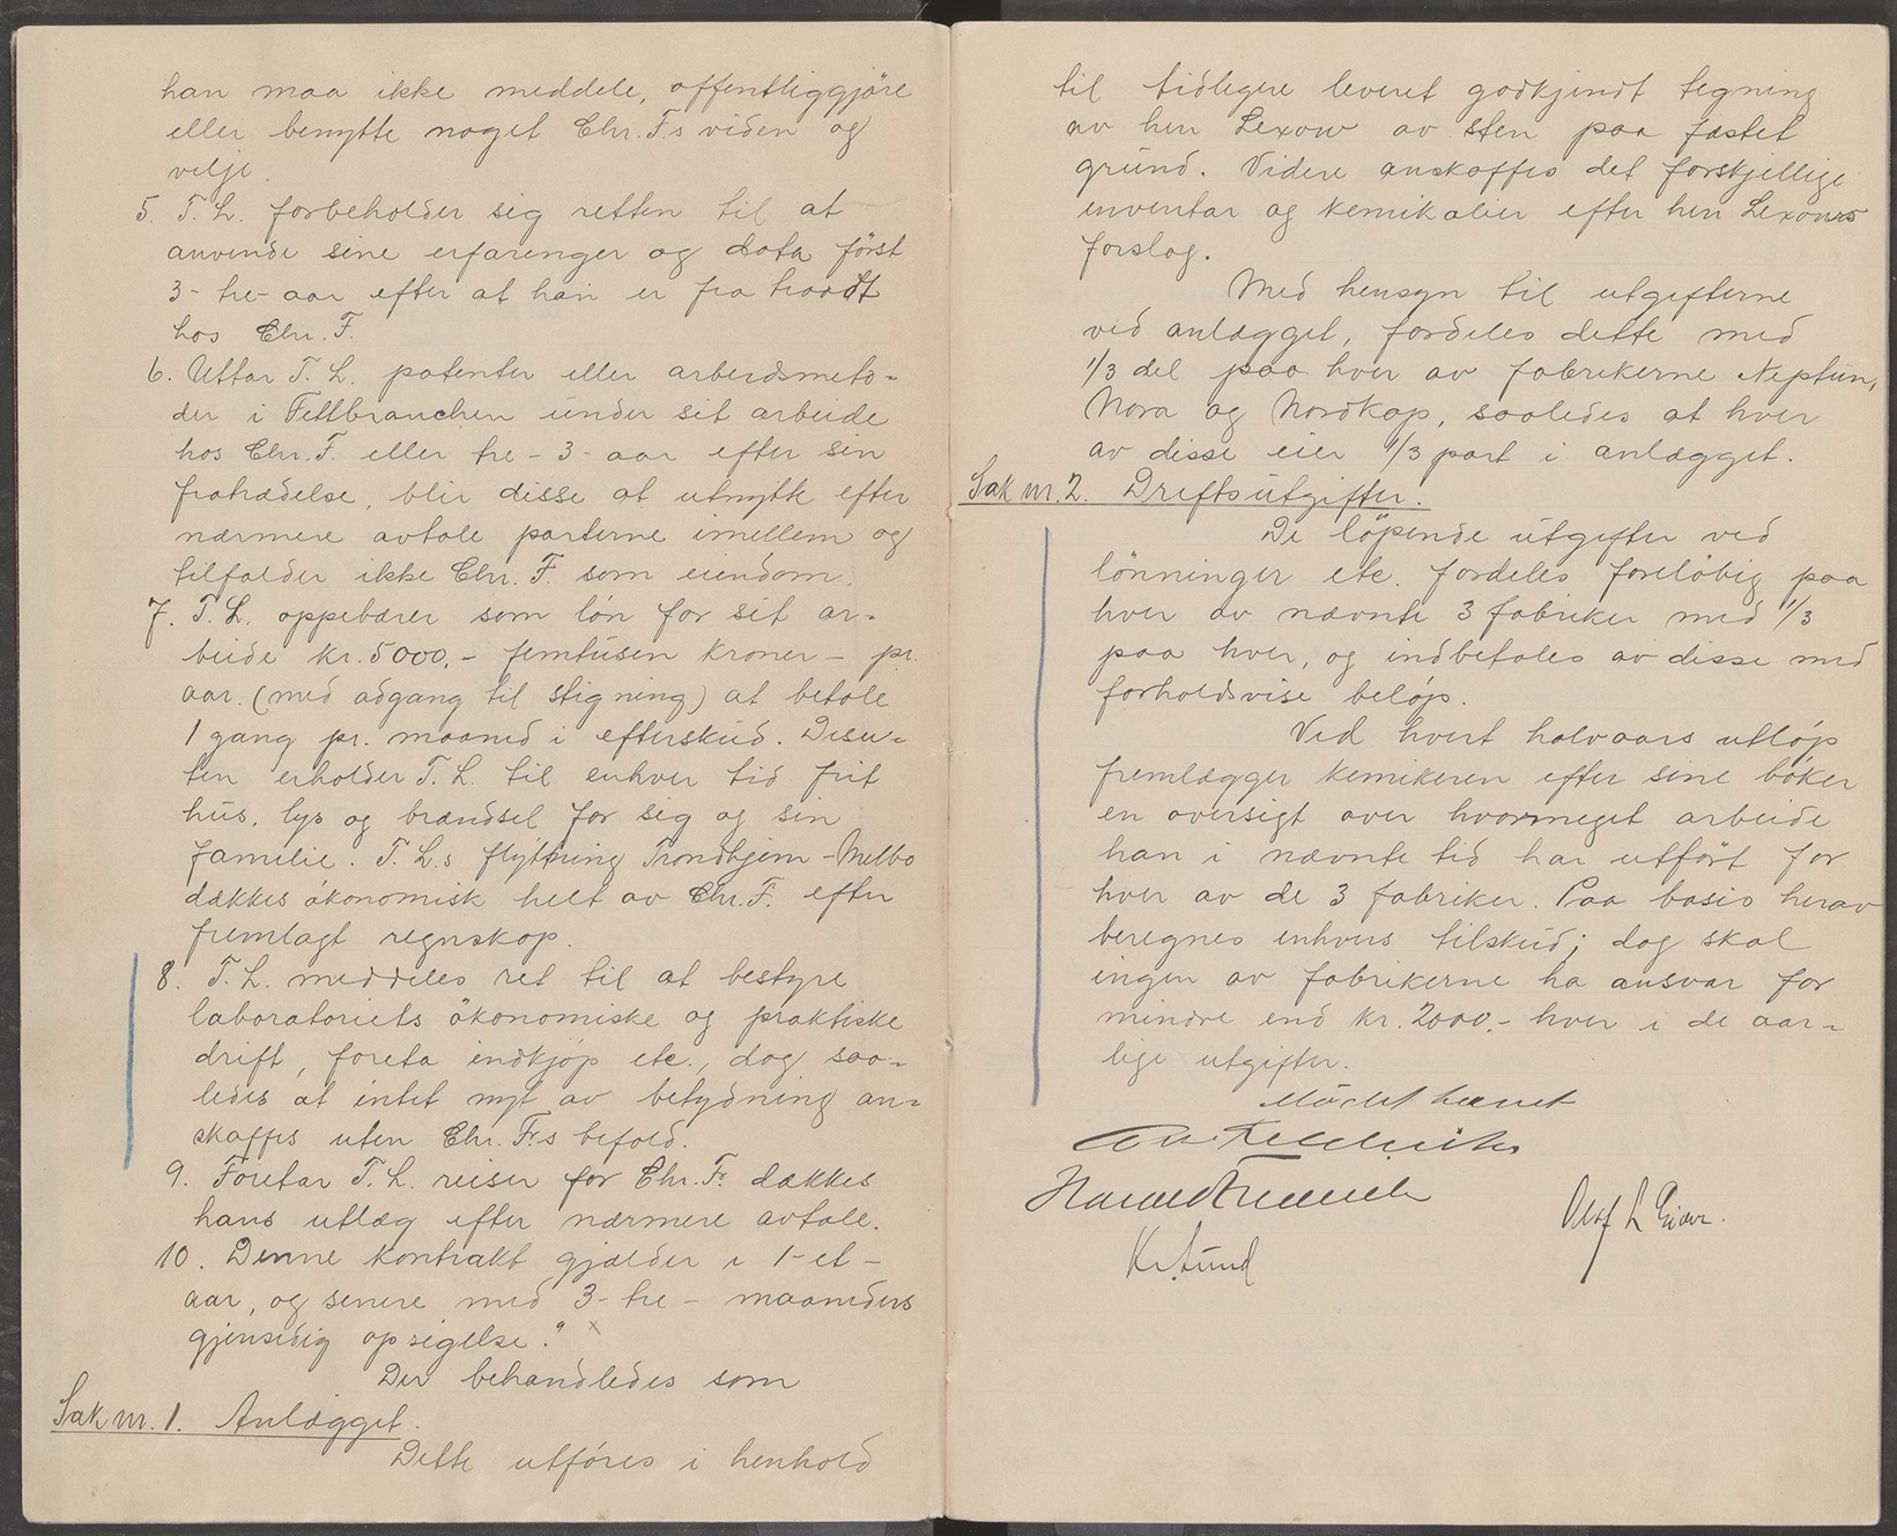 han maa ikke meddele, offentliggjöre
eller benytte noget Chr. F.s viden og
vilje.
5. T. L. forbeholder sig retten til at
anvende sine erfarenger og data först
3- tre- aar efter at han er fra traadt
hos Chr. F.
6. Uttar T. L. patenter eller arbeidsmeto-
der i Fettbranchen under sit arbeide
hos Chr. F. eller tre - 3 - aar efter sin
fratrædelse, blir disse at utnytte efter
nærmere avtale parterne imellem og
tilfalder ikke Chr. F. som eiendom.
7. T. L. oppebærer som lön for sit ar-
beide kr. 5000,- femtusen kroner - pr.
aar. (med adgang til stigning) at betale
1 gang pr. maaned i efterskud. Desu-
ten erholder T. L. til enhver tid frit
hus, lys og brændsel for sig og sin
familie. T. L.s flytning Trondhjem - Melbo
dækkes ökonomisk helt av Chr. F. efter
fremlagt regnskap.
8. T. L. meddeles ret til at bestyre
laboratoriets ökonomiske og praktiske
drift, foreta indkjöp etc., dog saa-
ledes at intet nyt av betydning an-
skaffes uten Chr. Fr.s befald.
9. Foretar T. L. reiser for Chr. Fr. dækkes
hans utlæg efter nærmere avtale.
10. Denne kontrakt gjælder i 1- et -
aar, og senere med 3- tre - maaneders
gjensidig opsigelse." x
Der behandledes som
Sak nr. 1. Anlægget.
Dette utföres i henhold
til tidligere leveret godkjendt tegning
av herr Lexow av sten paa fastet
grund. Videre anskaffes det forskjellige
inventar og kemikalier efter herr Lexows
forslag.
Med hensyn til utgifterne
ved anlægget, fordeles dette med
1/3 del paa hver av fabrikerne Neptun,
Nora og Nordkap, saaledes at hver
av disse eier 1/3 part i anlægget.
Sak nr. 2. Driftsutgifter.
De löpende utgifter ved
lönninger etc. fordeles forelöbig paa
hver av nævnte 3 fabriker med 1/3
paa hver, og indbetales av disse med
forholdsvise belöp.
Ved hvert halvaars utlöp
fremlægger kemikeren efter sine böker
en oversigt over hvormeget arbeide
han i nævnte tid har utfört for
hver av de 3 fabriker. Paa basis herav
beregnes enhvers tilskud; dog skal
ingen av fabrikerne ha ansvar for
mindre end kr. 2000.- hver i de aar-
lige utgifter.
Mödet hævet
Olaf L Giæver.
Kr. Lund